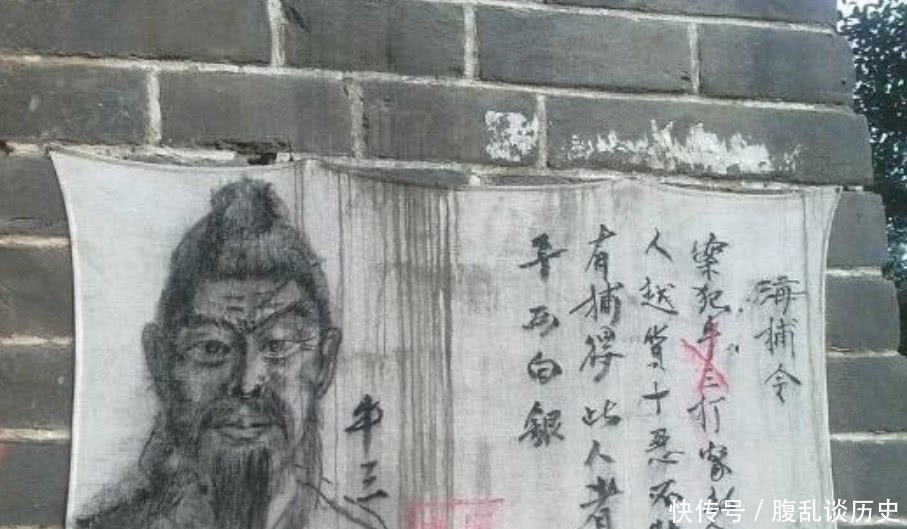 海捕令
案犯牛三打家
人越货十恶不
有捕得此人者
两白銀
牛三
快传号 / 腹乱谈历史